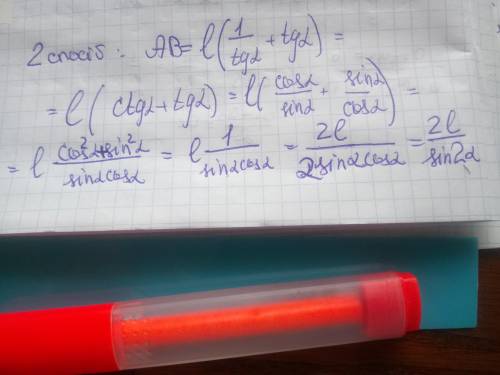 2 спосіб: AB = l(1/tgα + tgα) =
= l(ctgα + tgα) = l(cosα/sinα + sinα/cosα) =
= l (cos²α+sin²α)/(sinα cosα) = l 1/(sinα cosα) = 2l/(2sinα cosα) = 2l/sin2α